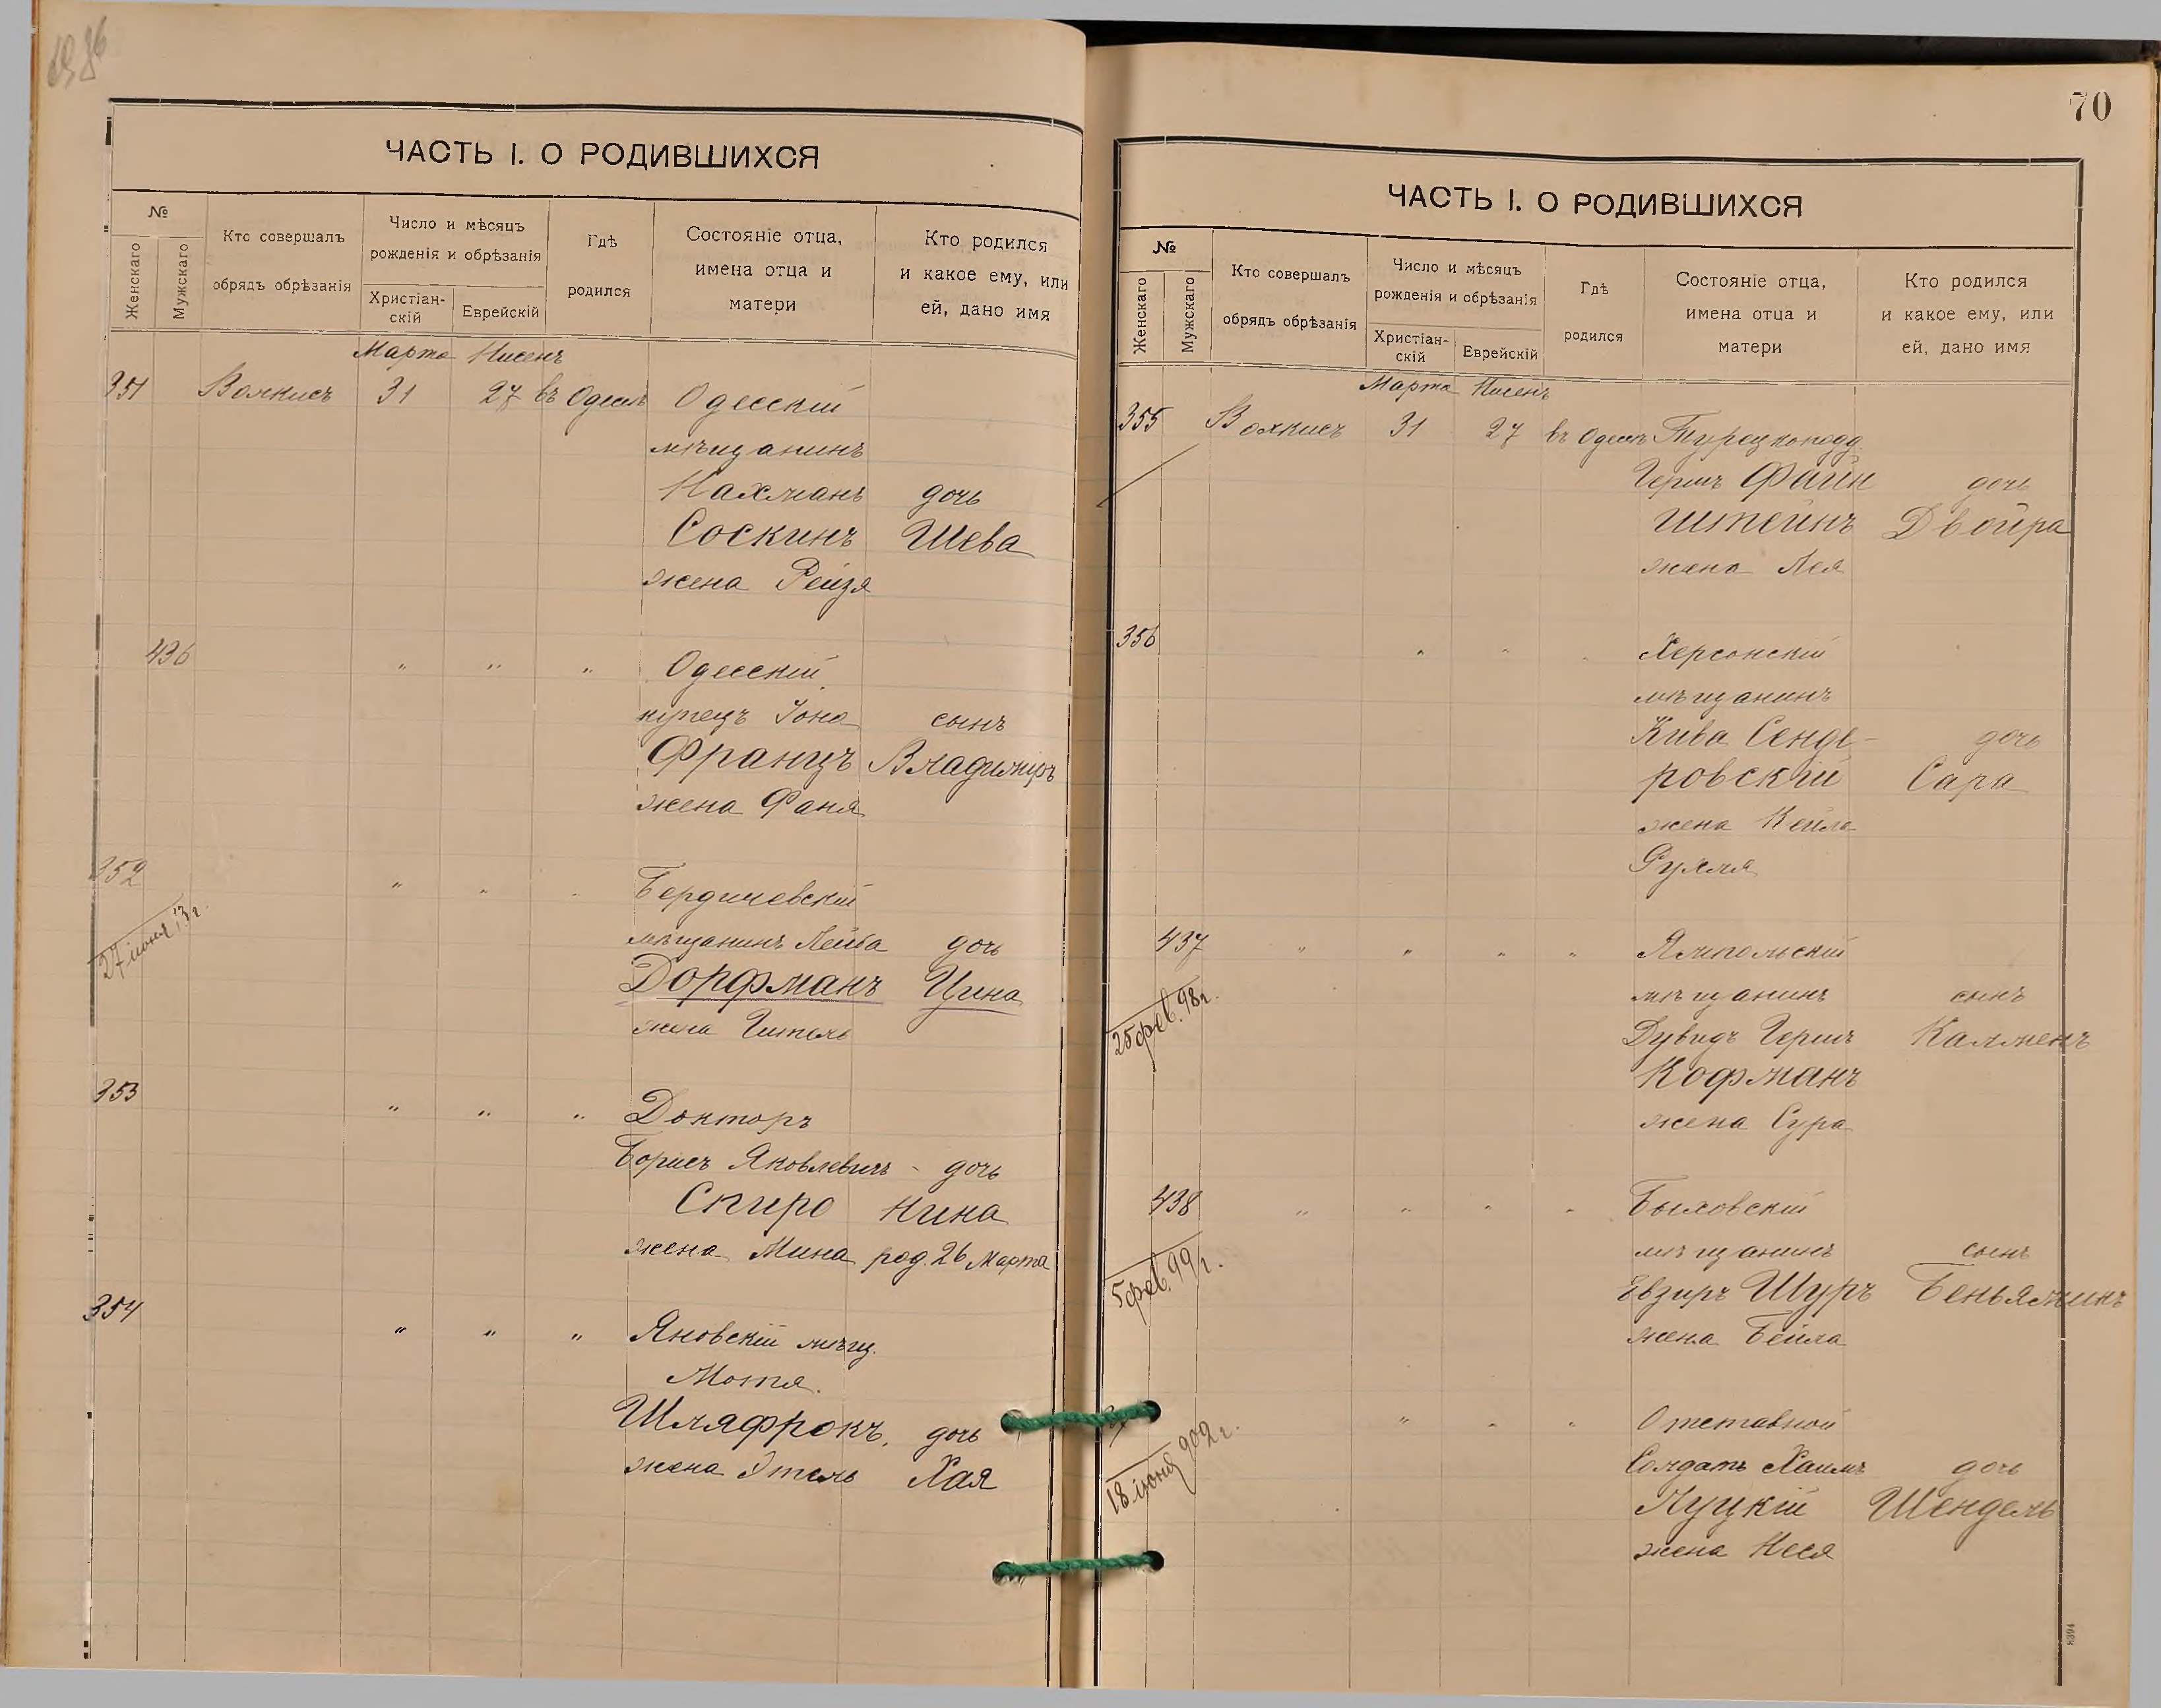 ЧАСТЬ I. О РОДИВШИХСЯ
№
Женскаго
Мужскаго
Кто совершалъ
обрядъ обрѣзанія
Число и мѣсяцъ
рожденія и обрѣзанія
Христіан-
скій
Еврейскій
Гдѣ
родился
Состояніе отца,
имена отца и
матери
Кто родился
и какое ему, или
ей, дано имя
Марта Нисенъ
351 31 27 въ Одессѣ Одесскій
мѣщанинъ
Нахманъ дочь
Соскинъ Шева
жена Рейзя
436 " " " Одесскій
купецъ Іона сынъ
Францъ Владимиръ
жена Фаня
352 " " " Бердичевскій
27 іюня 13 г.
мѣщанинъ Лейба дочь
Дорфманъ Цина
жена Гитель
353 " " " Докторъ
Борисъ Яковлевичъ - дочь
Спиро Нина
жена Мина род. 26 Марта
354 " " " Яновскій мѣщ.
Мотя
Шляфрокъ, дочь
жена Этель Хая
70
ЧАСТЬ I. О РОДИВШИХСЯ
№
Женскаго
Мужскаго
Кто совершалъ
обрядъ обрѣзанія
Число и мѣсяцъ
рожденія и обрѣзанія
Христіан-
скій
Еврейскій
Гдѣ
родился
Состояніе отца,
имена отца и
матери
Кто родился
и какое ему, или
ей, дано имя
Марта Нисенъ
355 31 27 въ Одессѣ Турецкоподд.
Гершъ Файн дочь
штейнъ Двойра
жена Лея
356 " " " Херсонскій
мѣщанинъ
Кива Сенде- дочь
ровскій Сара
жена Кейла
Рухля
437 " " " " Ямпольскій
25 фев. 98 г.
мѣщанинъ сынъ
Дувидъ Гершъ Калменъ
Кофманъ
жена Сура
438 " " " " Быховскій
5 фев. 99 г.
мѣщанинъ сынъ
Евзиръ Шуръ Беньяминъ
жена Бейла
" " " Отставной
18 іюня 902 г.
Солдатъ Хаимъ дочь
Луцкій Шендель
жена Нися
8394